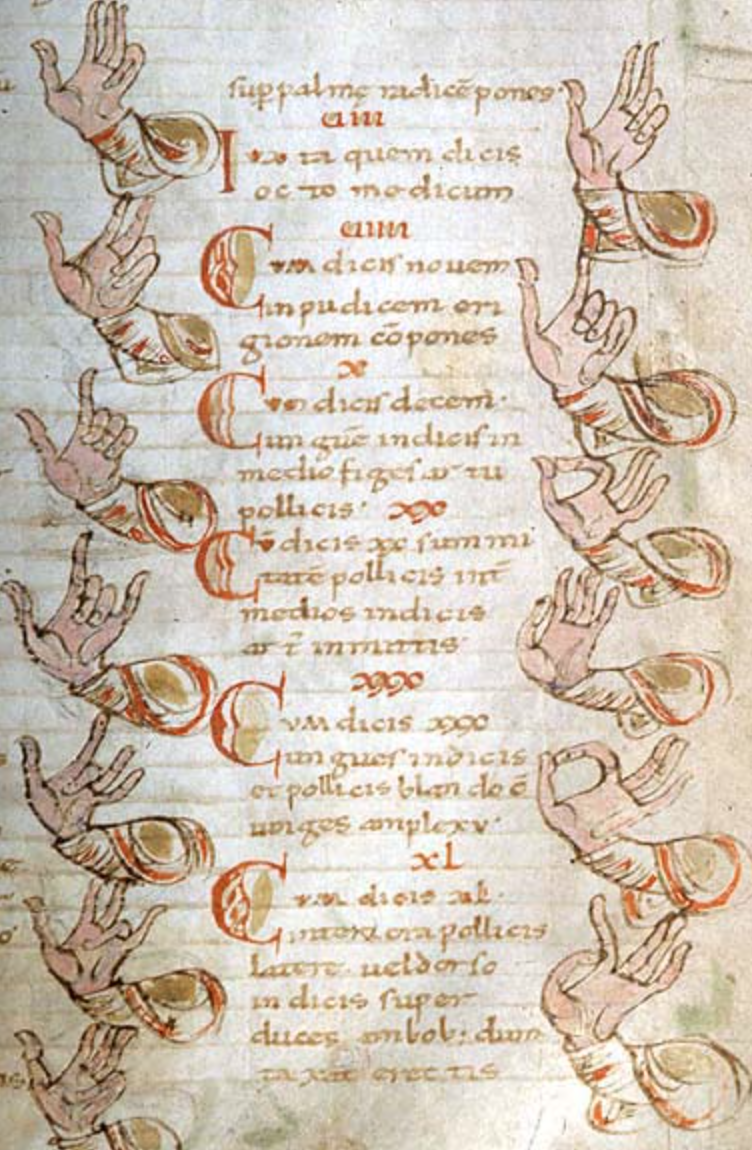 sup palmę radicē pones
uiii
Iuxta quem dicis
octo modicum
uiiii
Cum dicis nouem
inpudicem eri
gionem cōpones
x
Cum dicis decem·
unguē indicis in
medio figes artu
pollicis· xx
Cū dicis xx summi
tatē pollicis int̄
medios indicis
art̄ inmittis·
xxx
Cum dicis xxx
ungues indicis
et pollicis blando c̄
iunges amplexu·
xl
Cum dicis xl·
interiora pollicis
latere uel dorso
indicis super
duces ambob: dum
taxat erectis